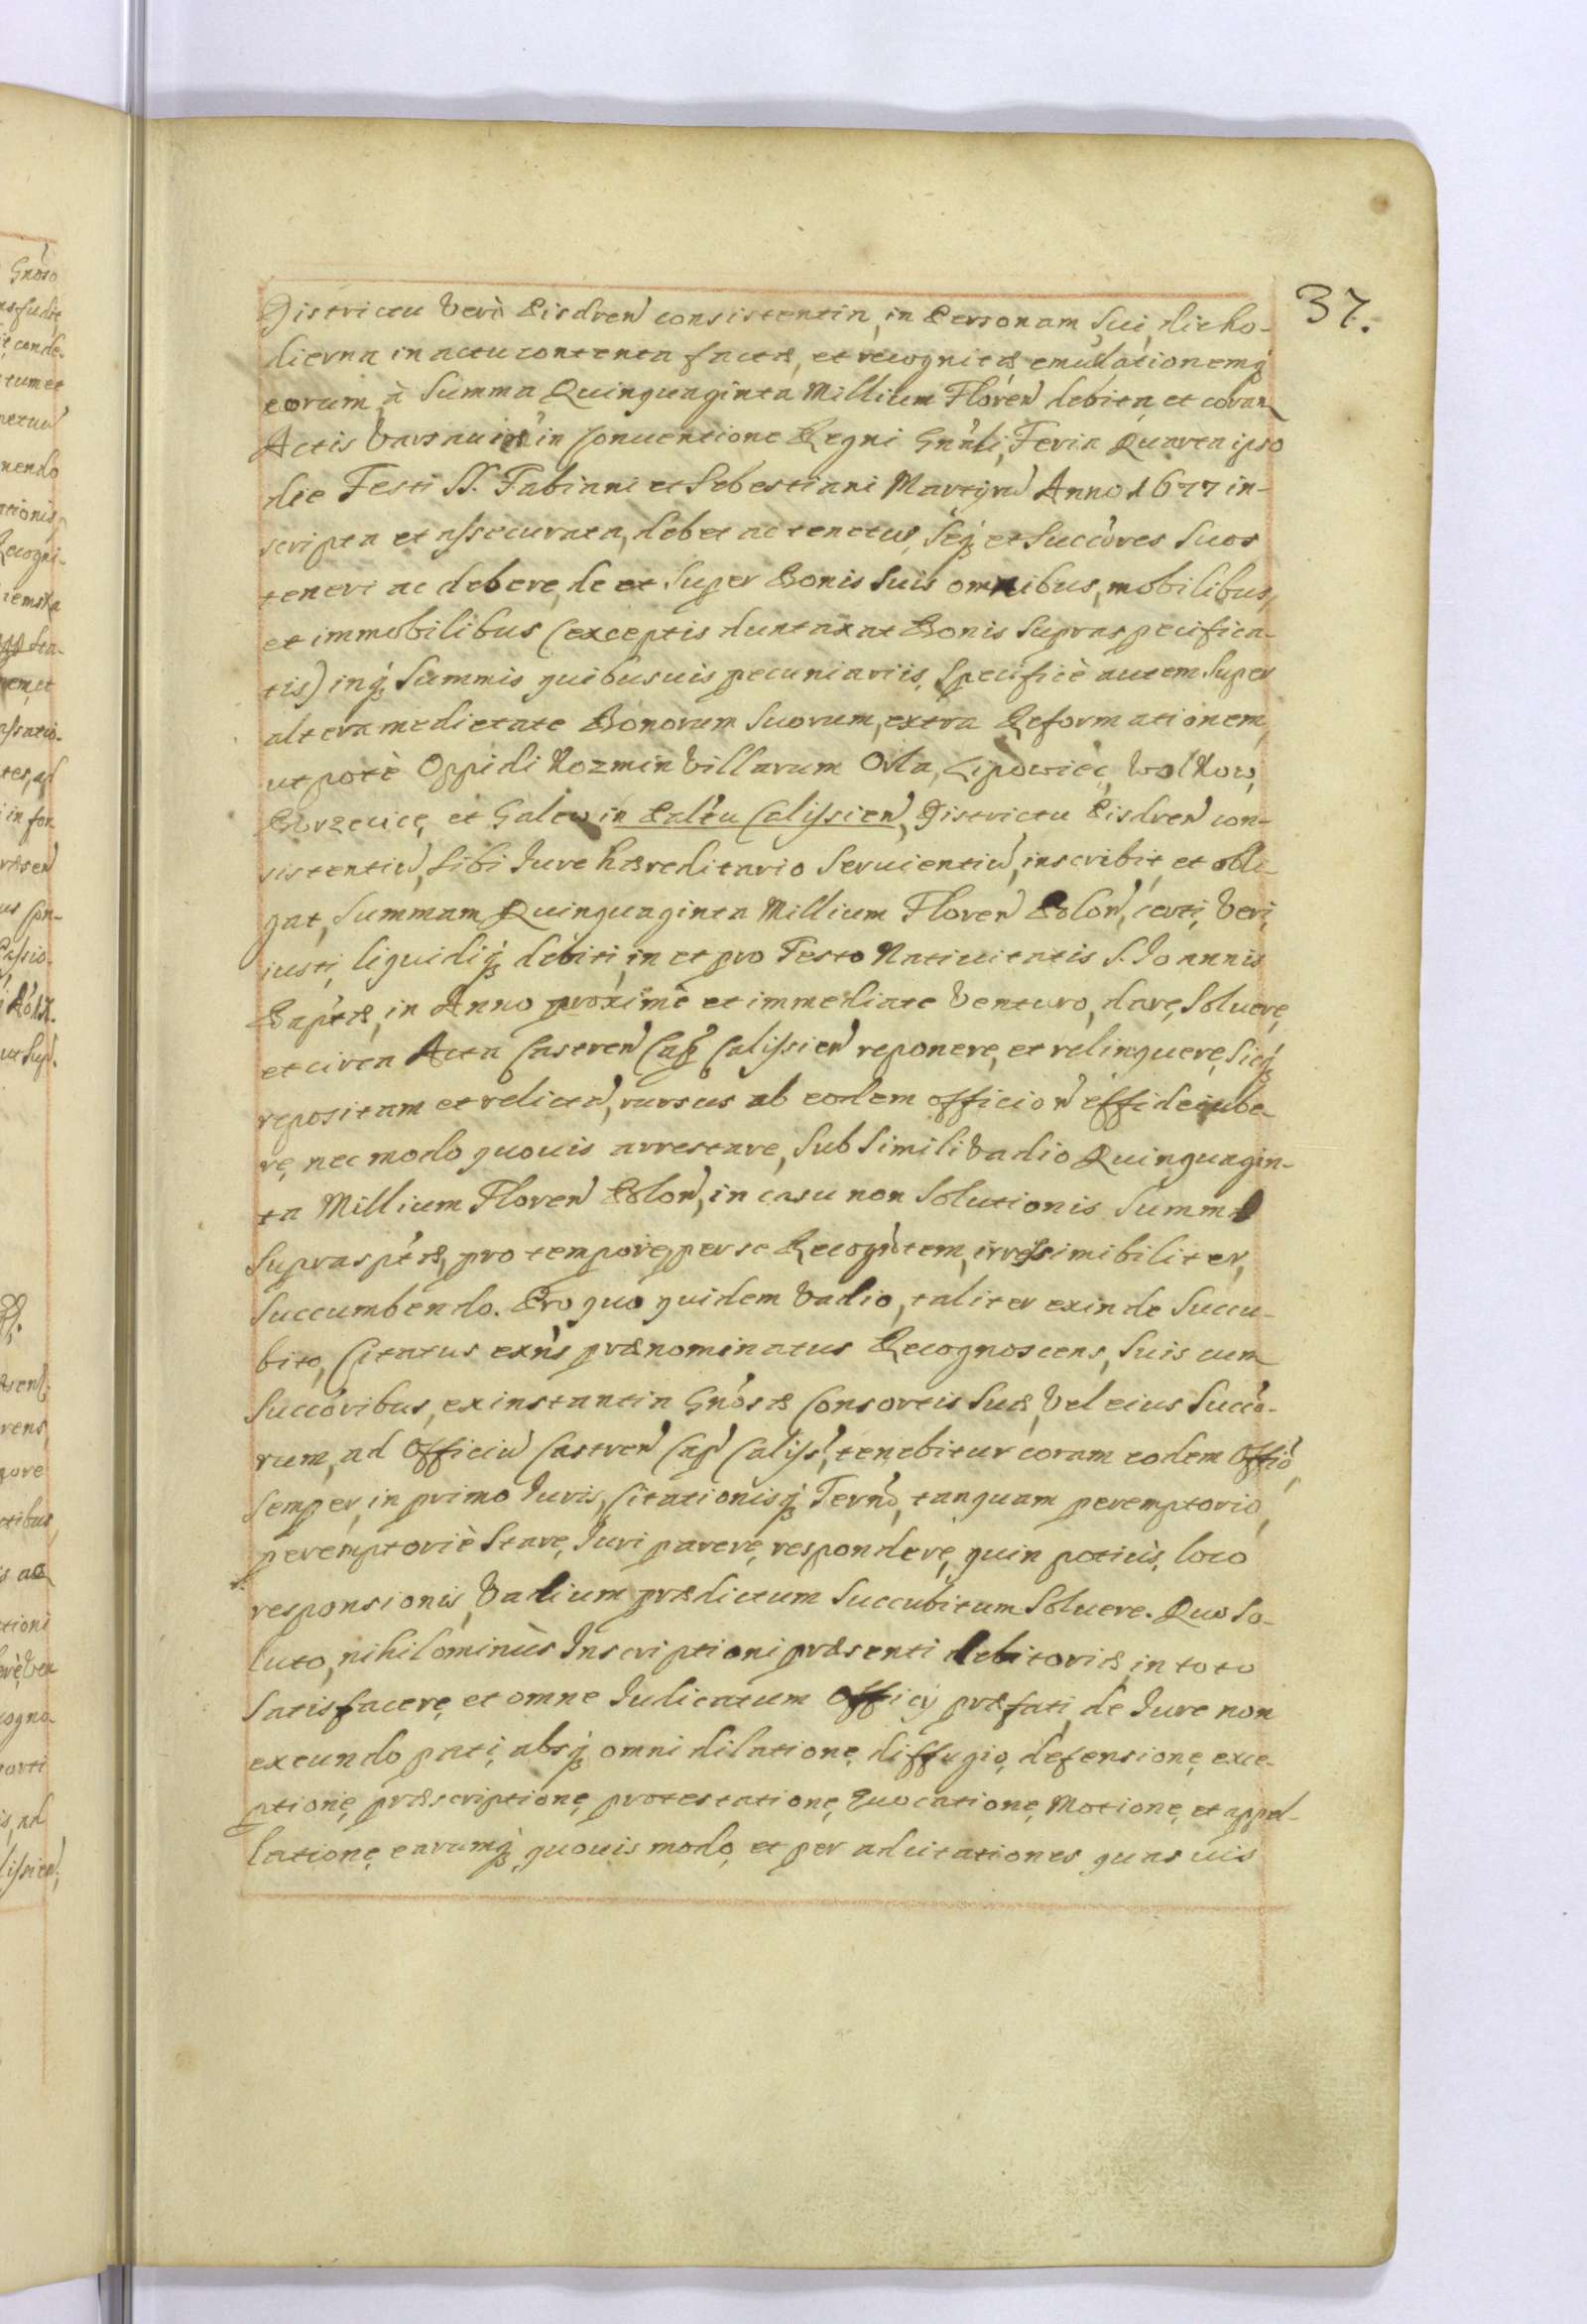 37.
Districtu verò Pisdren consistentia, in Personam sui, die ho-
dierna in actu contenta factæ, et recognitæ, emundationemq
eorum, à Summa Quinquaginta Millium Floren debita, et coram
Actis Varsauien in Conuentione Regni Gnali, Feria Quarta ipso
die Festi SS. Fabiani et Sebestiani Martyru Anno 1677 in-
scripta et assecurata, debet ac tenetur, seq et Succores suos
teneri ac debere, de et super Bonis suis omnibus, mobilibus,
et immobilibus (exceptis duntaxat Bonis supraspecifica-
tis) inq Summis quibusuis pecuniariis, specificè autem super
altera medietate Bonorum suorum, extra Reformationem,
utpotè Oppidi Kozmin Villarum Orla, Lipowiec, Wolkow,
Borzecice, et Galew in Paltu Calissien, Districtu Pisdren con-
sistentiu, sibi Iure hæreditario seruientiu, inscribit, et obli-
gat, Summam Quinquaginta Millium Floren Polon, certi, veri,
iusti, liquidiq debiti, in et pro Festo Natiuitatis S. Ioannis
Baptæ, in Anno proximè et immediate venturo, dare, soluere,
et circa Acta Castren Cap Calissien reponere, et relinquere, sicq
repositam et relictu, rursus ab eodem officio
re, nec modo quouis arrestare, sub simili vadio Quinquagin-
ta Millium Floren Polon, in casu non solutionis Summæ
supraspтæ, pro tempore, per se Recogntem,
succumbendo. Pro quo quidem vadio, taliter exinde succu-
bito, Citatus exns prænominatus Recognoscens, suis cum
Succoribus, ex instantia Gnosæ Consortis suæ, vel eius Succo-
rum, ad Officiu Castren Cap Caliss, tenebitur coram eodem Offio,
semper, in primo Iuris, Citationisq Terno, tanquam peremptorio,
peremptoriè stare, Iuri parere, respondere, quin potiùs, loco
responsionis, Vadium prædictum succubitum soluere. Quo so-
luto, nihilominùs Inscriptioni præsenti debitoriæ, in toto
satisfacere, et omne Iudicatum Officij præfati, de Iure non
exeundo pati, absq omni dilatione, diffugio, defensione, exce-
ptione, præscriptione, protestatione, Euocatione, Motione, et appel-
latione, earumq quouis modo, et per aducitationes quasuis